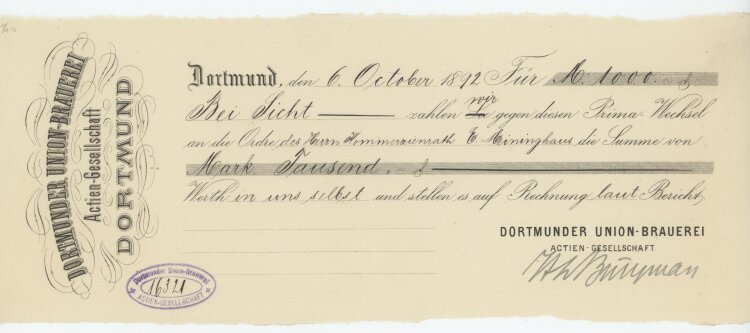 DORTMUNDER UNION-BRAUEREI
Actien-Gesellschaft
DORTMUND
Dortmund, den 6. October 1892 Für M: 1000.
Bei Sicht zahlen wir gegen diesen Prima-Wechsel
an die Ordre des Herrn Kommerzienrath E. Meininghaus die Summe von
Mark Tausend.
Werth in uns selbst und stellen es auf Rechnung laut Bericht,
DORTMUNDER UNION-BRAUEREI
ACTIEN-GESELLSCHAFT
Dortmunder Union-Brauerei
16321
ACTIEN-GESELLSCHAFT